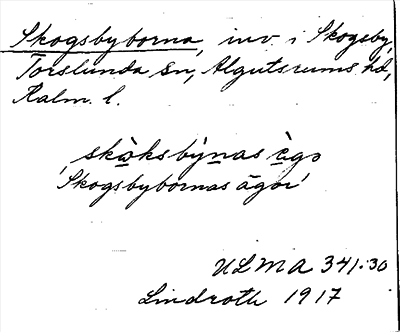 Skogsbyborna, inv. i Skogsby,
Torslunda sn, Algutsrums hd,
Kalm. l.
skɷ̀ksbýnas ɛ̀gɷ
'Skogsbybornas ägor'
ULMA 341:30
Lindroth 1917